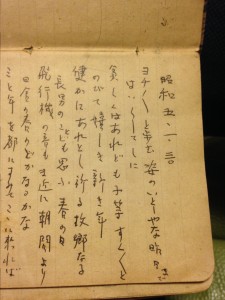 昭和五・一・三〇
ヨチ〳〵と歩む姿のいと
はい〳〵してしに
貧しくはあれども子等すく〳〵と
のびて嬉しき新き年
健かにあれと祈る故郷なる
長男のことども思ふ春の日
飛行機の音も間近に朝間より
田舎の春のどかなるかな
三と年を都にすみてここに来れば